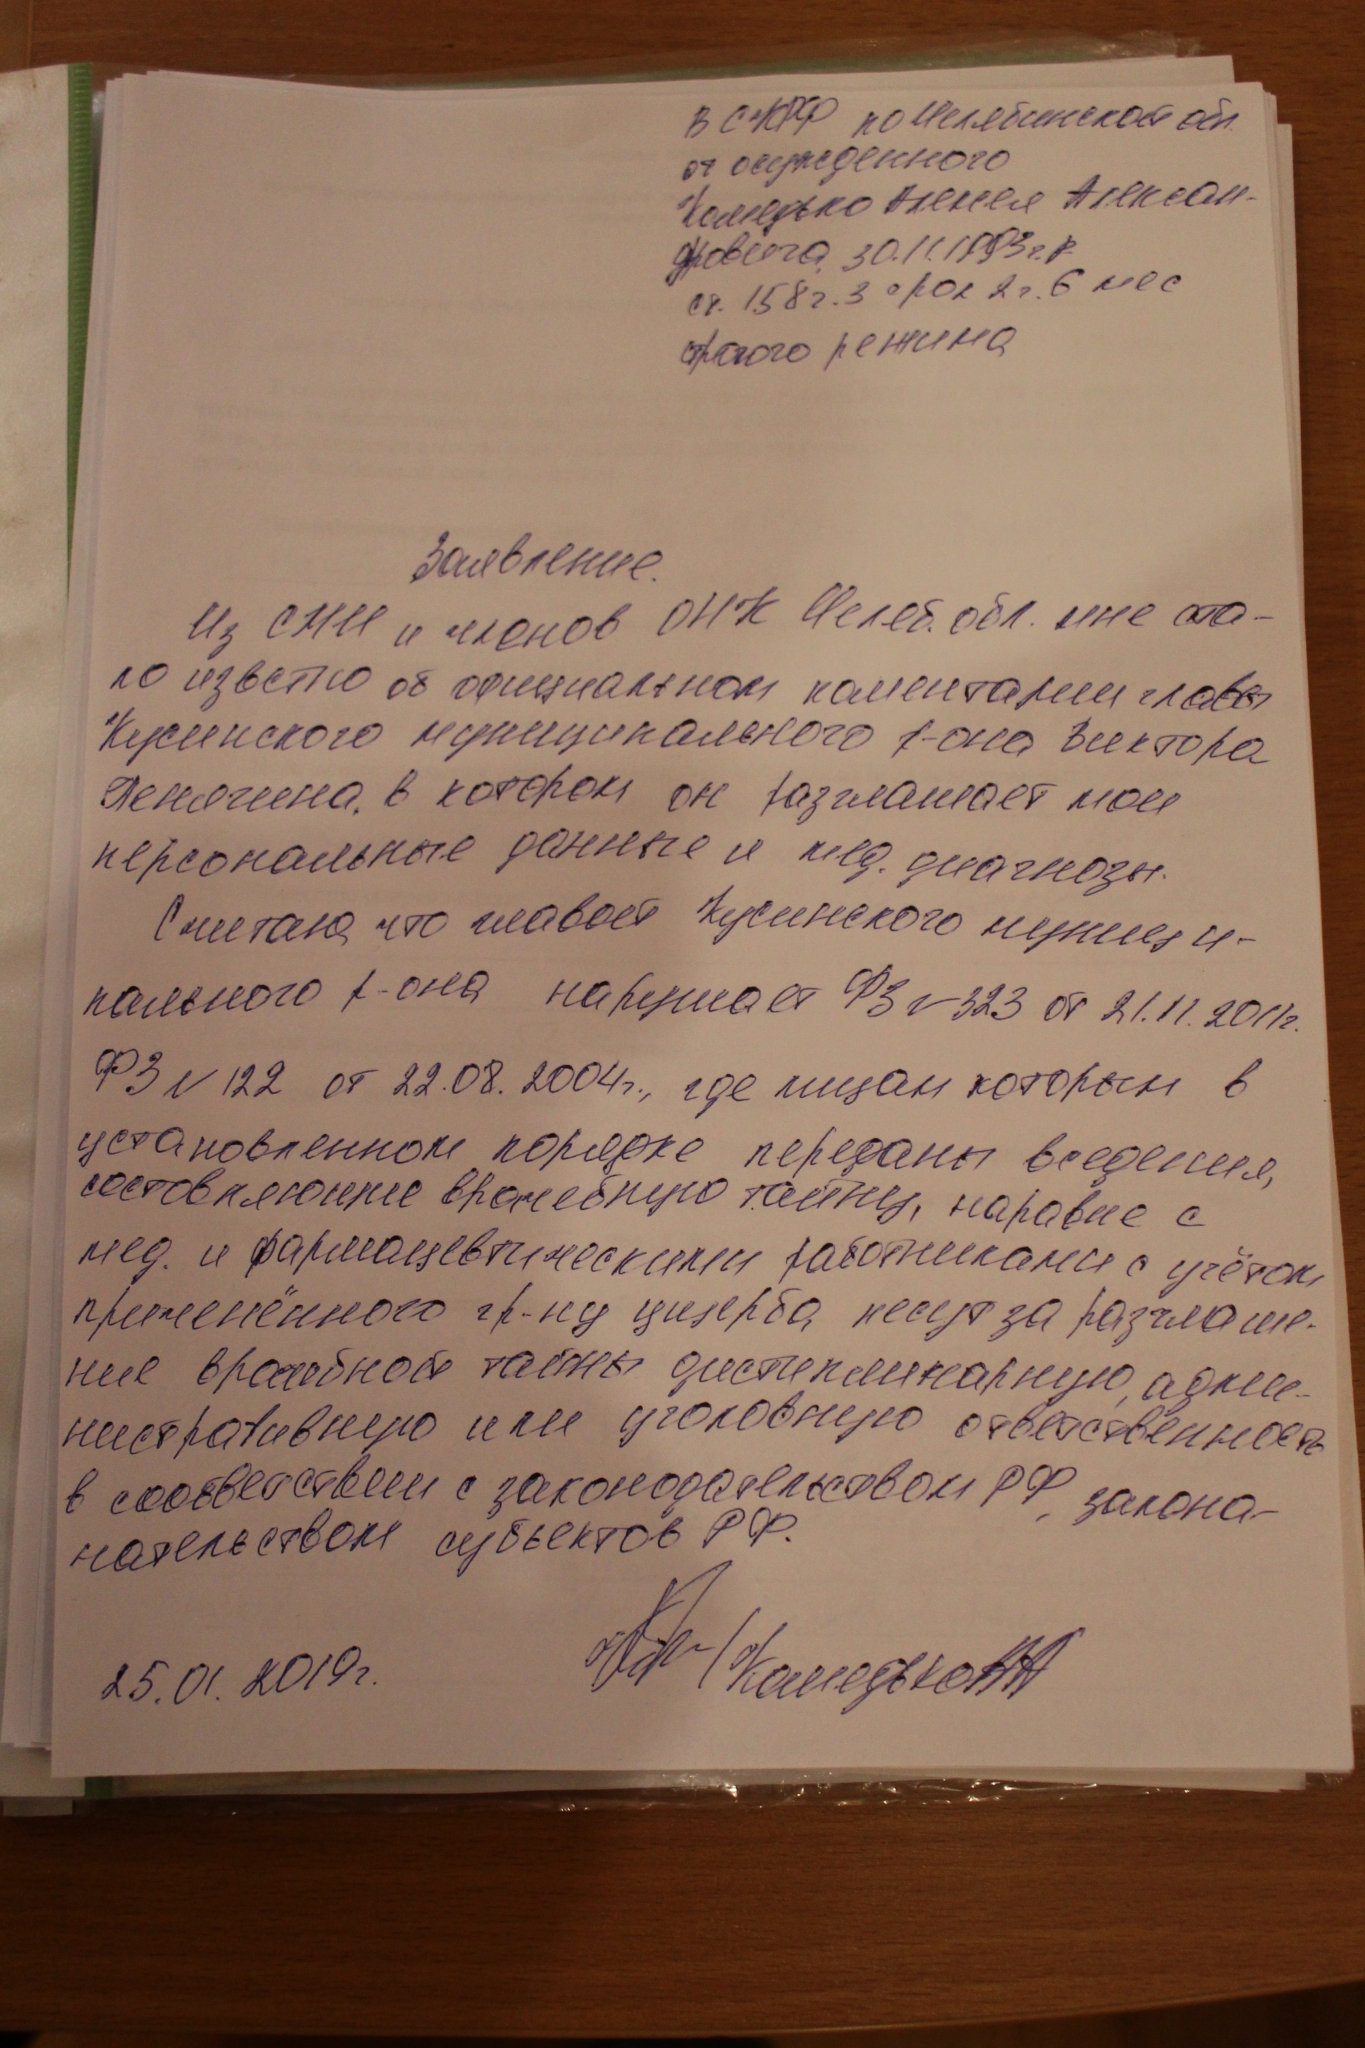 В СКРФ по Челябинской обл.
от осужденного
Комедько Алексея Алексан-
дровича 30.11.1993г.р
ст. 158 ч. 3 срок 2 г. 6 мес
строгого режима
Заявление.
Из СМИ и членов ОНК Челяб. обл. мне ста-
ло известно об официальном коментарии главы
Кусинского муниципального р-она Виктора
в котором он разглашает мои
персональные данные и мед. диагнозы.
Считаю, что главой Кусинского муници-
пального р-она нарушает ФЗ № 323 от 21.11.2011г.
ФЗ № 122 от 22.08.2004г., где лицам которым в
установленном порядке переданы сведения,
составляющие врачебную тайну, наравне с
мед. и фармацевтическими работниками с учётом
причинённого гр-ну ущерба, несут за разглаше-
ние врачебной тайны дисциплинарную, адми-
нистративную или уголовную ответственность
в соответствии с законодательством РФ, закона-
нательством субъектов РФ.
25.01.2019г. / Комедько АА